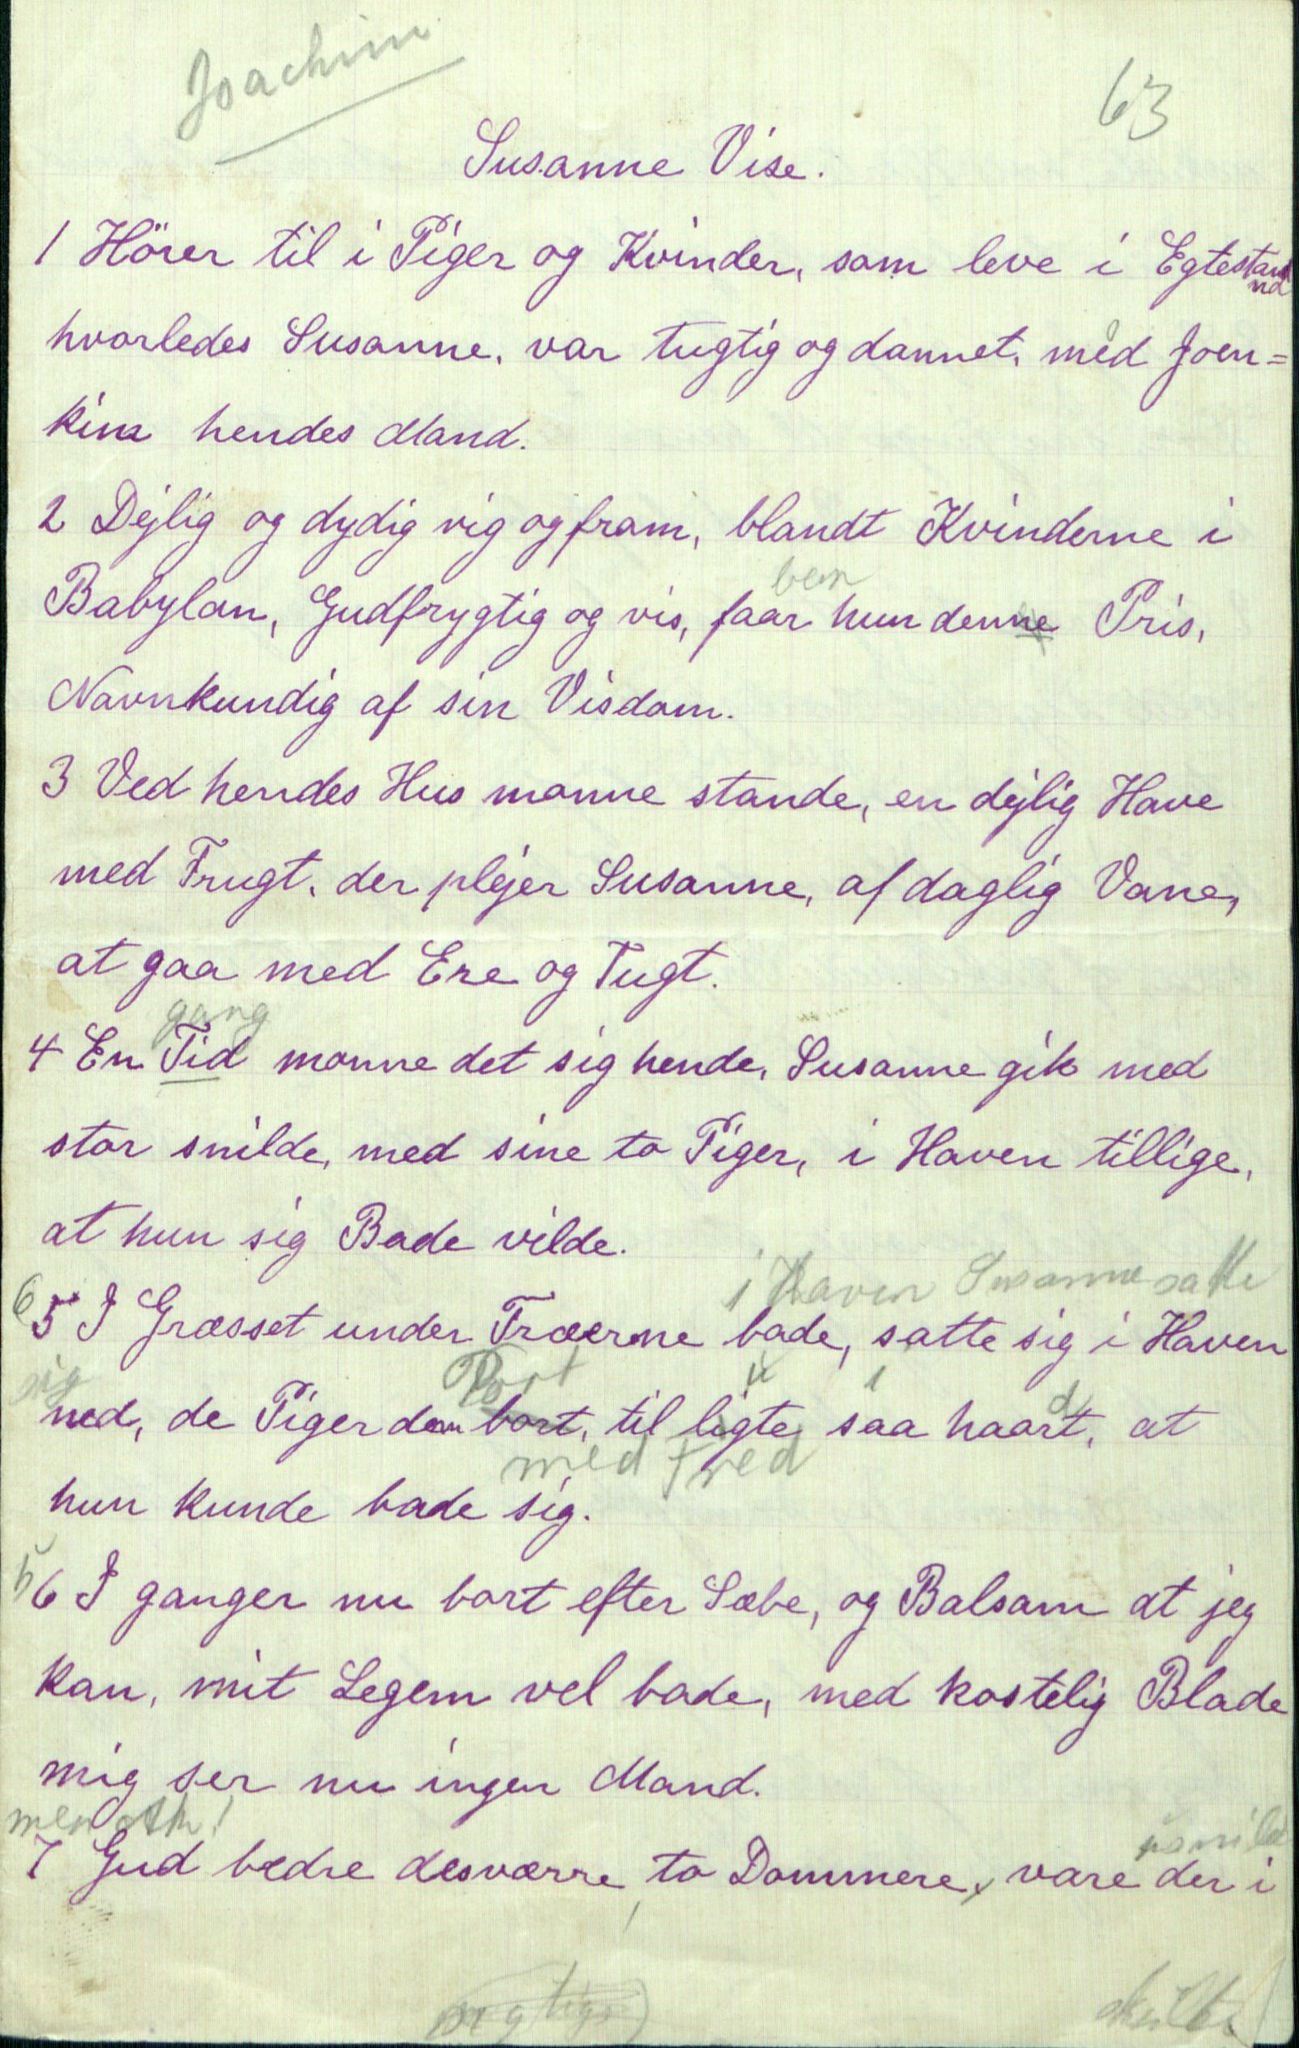 Joachim
63
Susanne Vise.
1 Hører til i Piger og Kvinder, som leve i Egtestand
hvorledes Susanne, var tugtig og dannet, med Joen=
kim hendes Mand.
2 Dejlig og dydig rig og from, blandt Kvinderne i
Babylon, Gudfrygtig og vis, faar hun denne Pris,
Navnkundig af sin Visdom.
3 Ved hendes Hus monne stande, en dejlig Have
med Frugt, der plejer Susanne, af daglig Vane,
at gaa med Ere og Tugt.
gang
4 En Tid monne det sig hende, Susanne gik med
stor snilde, med sine to Piger, i Haven tillige,
at hun sig Bade vilde.
i Haven Susanne satte
6 5 I Græsset under Træerne bade, satte sig i Haven
sig Port
ned, de Piger den bort, til ligte saa haart, at
med Fred
hun kunde bade sig.
5 6 I ganger nu bort efter Sæbe, og Balsam at jeg
kan, mit Legem vel bade, med kostelig Blade
mig ser nu ingen Mand.
men
7 Gud bedre desværre, to Dommere, vare der i